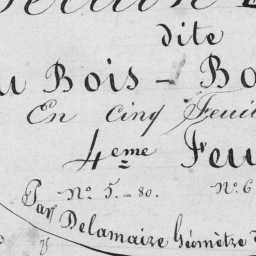 dite
Bois - Bo
En Cinq Feuil
4eme Feu
Nº 5. - 80. Nº 6
Par Delamaire Géomètre